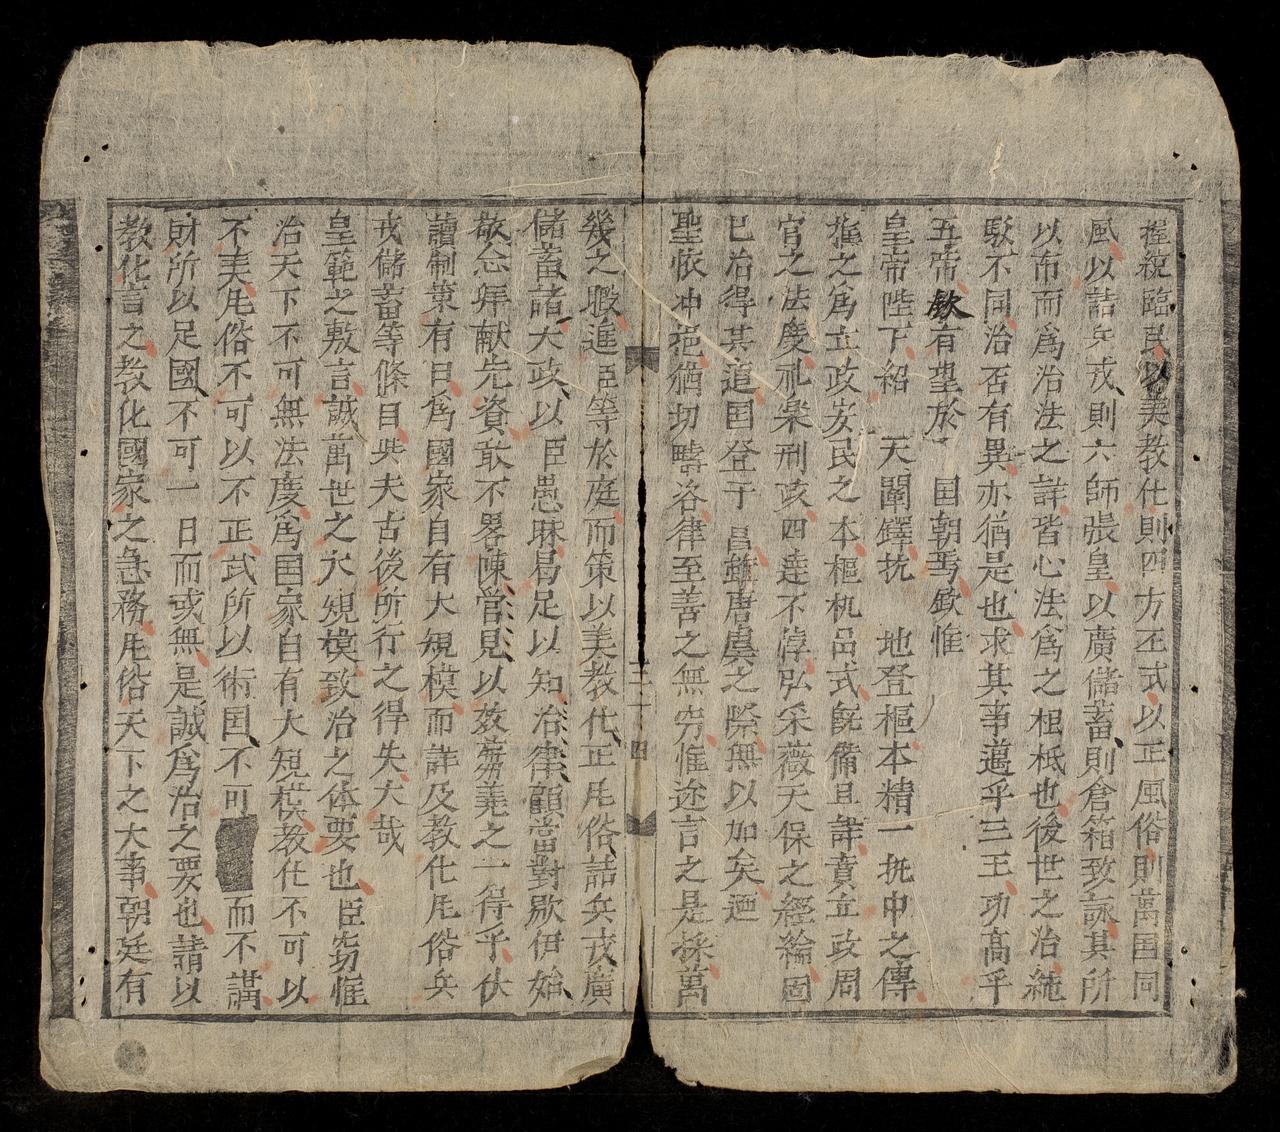 握統臨民以美教化則四方丕式以正風俗則萬国同
風以詰兵戎則六師張皇以廣儲蓄則倉箱致詠其所
以布而爲治法之詳皆心法爲之柢也後世之治純
駁不同治否有異亦猶是也求其事邁乎三王功高乎
五帝欽有望於国朝焉欽惟
皇帝陛下紹天闡鐸抚地登樞本精一执中之傳
推之爲立政安民之本樞机品式旣備且詳責立政周
官之法度礼楽刑政四達不悖弘采薇天保之經綸固
已治得其道国登于昌雖唐虞之際無以加矣迺
聖衷冲挹猶切疇洛律至善之無穷惟迩言之是採萬
三十四
幾之暇進臣等於庭而策以美教化正風俗詰兵戎廣
儲蓄諸大政以臣愚昧曷足以知治律顧當對敭伊始
敬忘拜献先資敢不畧陳営見以效蒭蕘之一得乎伏
讀制策有曰爲國家自有大規模而詳及教化風俗兵
戎儲蓄等條目此夫古後所行之得失大哉
皇範之敷言誠萬世之大規模致治之体要也臣窃惟
治天下不可無法度爲国家自有大規模教化不可以
不美風俗不可以不正武所以衛国不可而不講
財所以足國不可一日而或無是誠爲治之要也請以
教化言之教化國家之急務風俗天下之大事朝廷有